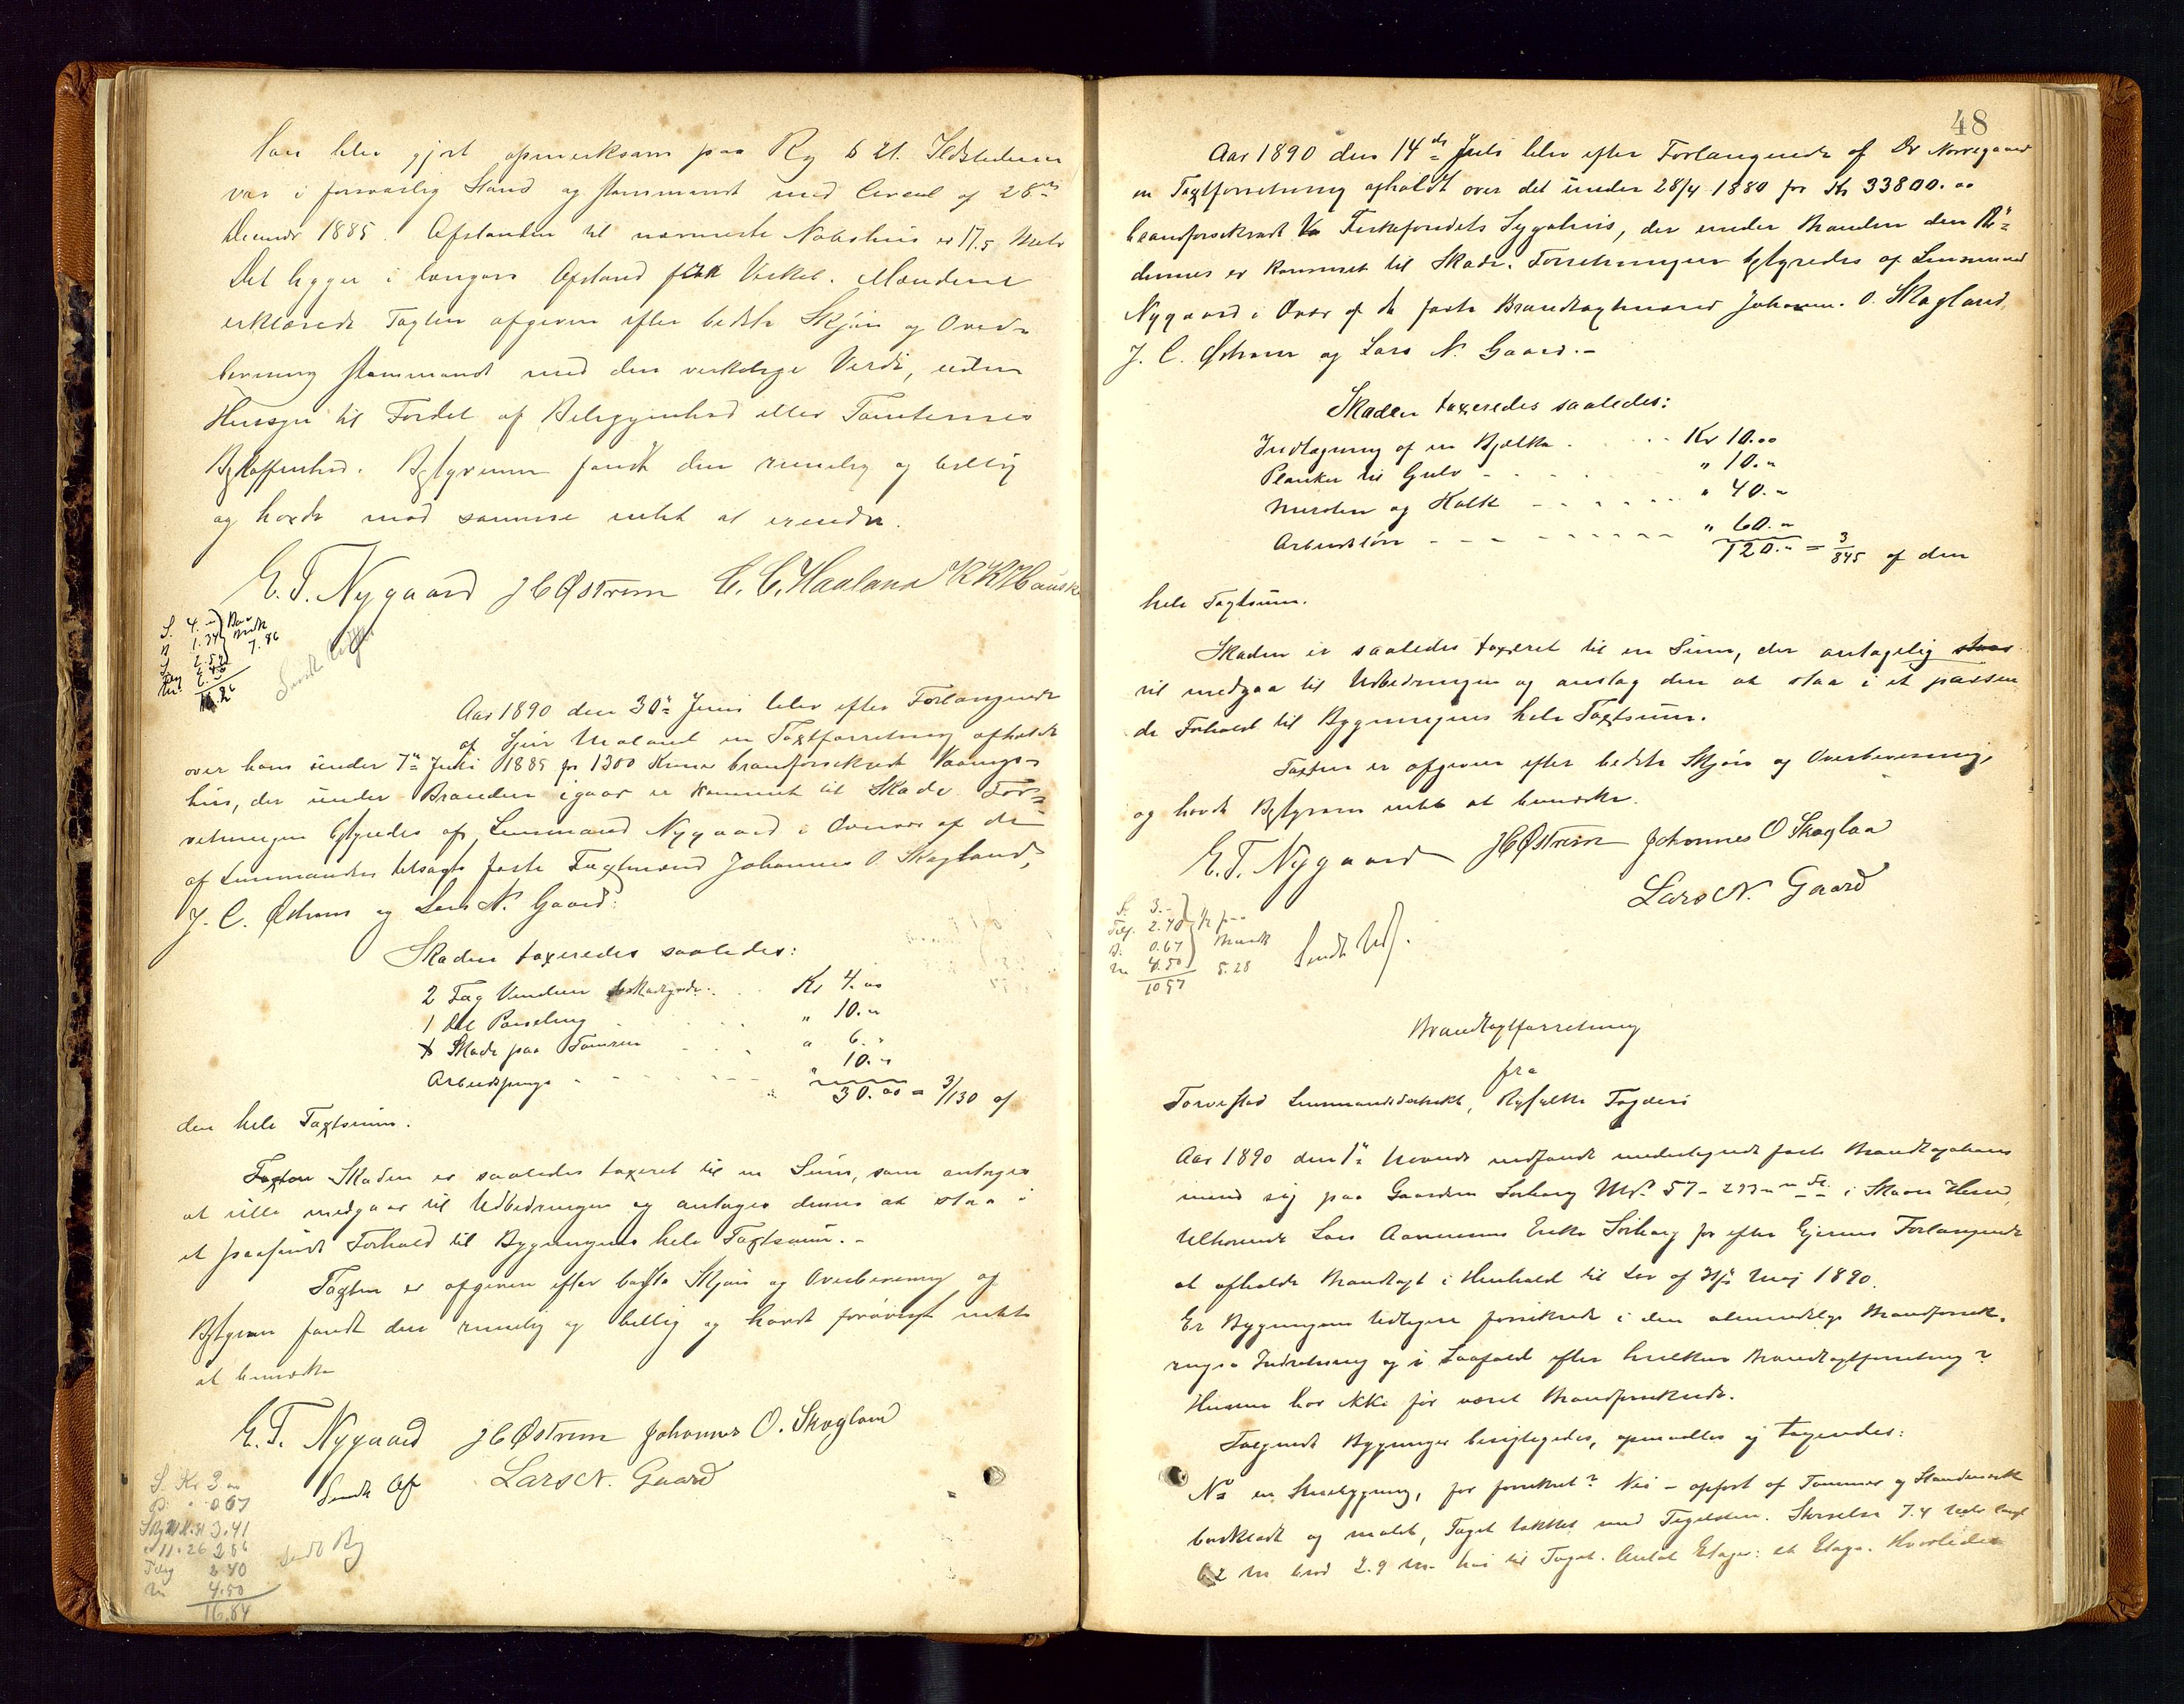 Han blev gjort opmerksom paa Rg § 21. Ildstederne
var i forsvarlig Stand og stemmende med Circul. af 28de
Decembr 1885. Afstanden til nærmeste Nabohus er 17,5 Meter
Det ligger i længere Afstand fra Verket. Mændene
erklærede Taxten afgiven efter bedste Skjøn og Overbe-
visning stemmende med den virkelige Verdi, uden
Hensyn til Fordel af Beliggenhed eller Tomternes
Beskaffenhed. Bestyreren fandt den rimelig og billig
og havde mod samme intet at erindre.
E. T. Nygaard J C Østrem C. C. Haaland K K Hauske
S. 4.
B 1.34
7.86
Aar 1890 den 30te Juni blev efter Forlangende
af Ejeren en Taxtforretning afholdt
over hans under 7de Juli 1885 for 1300 Kroner brandforsikrede Vaanings-
hus, der under Branden igaar er kommet til Skade. For-
retningen bestyredes af Lensmand Nygaard i Overvær af de
af Lensmanden tilsagte faste Taxtmænd Johannes O. Skogland,
J. C. Østrem og Lars N. Gaard.
Skaden taxeredes saaledes:
2 Fag Venduer beskadigede . . Kr 4.00
1 Del Paneling . . . " 10.-
Skade paa Tømren . . . " 6.-
Arbeidspenge . . . " 10.-
30.00 = 3/130 af
den hele Taxtsum.
Skaden er saaledes taxeret til en Sum, som antages
at ville medgaa til Udbedringen og antages denne at staa i
et passende Forhold til Bygningens hele Taxtsum.-
Taxten er afgiven efter bedste Skjøn og Overbevisning og
Bestyreren fandt den rimelig og billig og havde forøvrigt intet
at bemærke
E. T. Nygaard J C Østrem Johannes O. Skogland
Sendt Afs. Lars N. Gaard
S. Kr 3.00
B. " 0.67
3.41
11.26 2.56
Tilsg 2.40
M 4.50
16.84
48
Aar 1890 den 14de Juli blev efter Forlangende af Dr Norregaard
en Taxtforretning afholdt over det under 28/4 1880 for Kr 33800.00
brandforsikrede Fiskefondets Sygehus, der under Branden den
dennes er kommet til Skade. Forretningen bestyredes af Lensmand
Nygaard i Overvær af de faste Brandtaxtmænd Johannes O. Skogland,
J. C. Østrem og Lars N. Gaard.-
Skaden taxeredes saaledes:
Indlægning af en Bjelke . . . Kr 10.00
Planker til Gulv - . . . " 10.-
Mursten og Kalk - - - . . " 40.-
Arbeidsløn - - - - - " 60.-
120.- = 3/845 af den
hele Taxtsum.
Skaden er saaledes taxeret til en Sum, der antagelig staa
vil medgaa til Udbedringen og antag den at staa i et passen
de Forhold til Bygningens hele Taxtsum.
Taxten er afgiven efter bedste Skjøn og Overbevisning,
og havde Bestyreren intet at bemærke.
E. T. Nygaard J C Østrem Johannes O Skogland
Lars N. Gaard
S. 3.-
Tilsg. 2.40
B. 0.67
M 4.50 5.28
10 57
Sendt Uds.
Brandtaxtforretning
fra
Torvestad Lensmandsdistrikt, Ryfylke Fogderi
Aar 1890 den 1te Novembr indfandt undertegnede faste Brandtaxations
mænd sig paa Gaarden Sørhaug Mno 57 - i Skaare Herred,
tilhørende Lars Aanensens Enke Sørhaug for efter Ejerens Forlangende
at afholde Brandtaxt i Henhold til Lov af 31te Maj 1890.
Er Bygningerne tidligere forsikrede i den almindelige Brandforsik-
rings Indretning og i saafald efter hvilken Brandtaxtforretning?
Husene har ikke før været Brandforsikrede.
Følgende Bygninger besigtigedes, opmaaltes og taxeredes:
No en Stuebygning, før forsikret? Nei - opført af Tømmer og Standerverk
bordklædt og malet, Taget tækket med Tegelsten. Størrelse 7.4 Meter langt
6.2 M bred 2.9 M. høi til Taget. Antal Etager: et Etage. Hvorledes